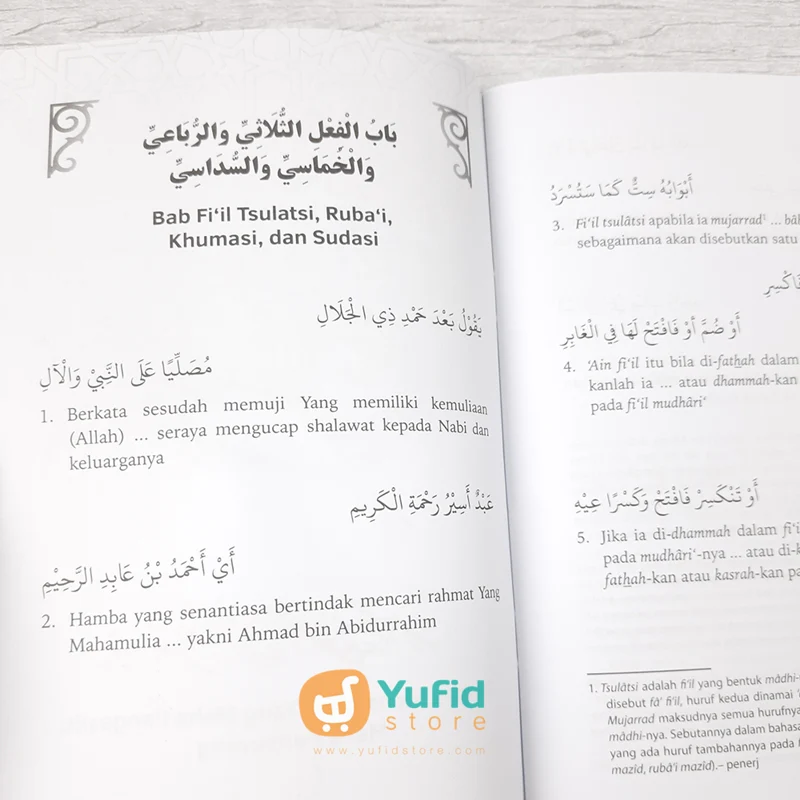 بَابُ الْفِعْلِ الثُّلَاثِيِّ وَالرُّبَاعِيِّ
وَالْخُمَاسِيِّ وَالسُّدَاسِيِّ
Bab Fi‘il Tsulatsi, Ruba‘i,
Khumasi, dan Sudasi
يَقُوْلُ بَعْدَ حَمْدِ ذِي الْجَلَالِ
مُصَلِّيًا عَلَى النَّبِيْ وَالْآلِ
1. Berkata sesudah memuji Yang memiliki kemuliaan
(Allah) ... seraya mengucap shalawat kepada Nabi dan
keluarganya
عَبْدٌ أَسِيْرُ رَحْمَةِ الْكَرِيمِ
أَيْ أَحْمَدُ بْنُ عَابِدِ الرَّحِيْمِ
2. Hamba yang senantiasa bertindak mencari rahmat Yang
Mahamulia ... yakni Ahmad bin Abidurrahim
أَبْوَابُهُ سِتٌّ كَمَا سَتُسْرَدُ
3. Fi‘il tsulâtsi apabila ia mujarrad¹ ...
sebagaimana akan disebutkan satu
فَاكْسِرِ
أَوْ ضُمَّ أَوْ فَافْتَحْ لَهَا فِي الْغَابِرِ
4. ‘Ain fi‘il itu bila di-fathah dalam
kanlah ia ... atau dhammah-kan
pada fi‘il mudhâri‘
أَوْ تَنْكَسِرْ فَافْتَحْ وَكَسْرًا عِيْهِ
5. Jika ia di-dhammah dalam
pada mudhâri‘-nya ... atau
fathah-kan atau kasrah-kan
1. Tsulâtsi adalah fi‘il yang bentuk mâdhi-
disebut fâ’ fi‘il, huruf kedua dinamai
Mujarrad maksudnya semua hurufnya
mâdhi-nya. Sebutannya dalam bahasa
yang ada huruf tambahannya pada
mazid, rubâ‘i mazid).– penerj
Yufid
store
www.yufidstore.com